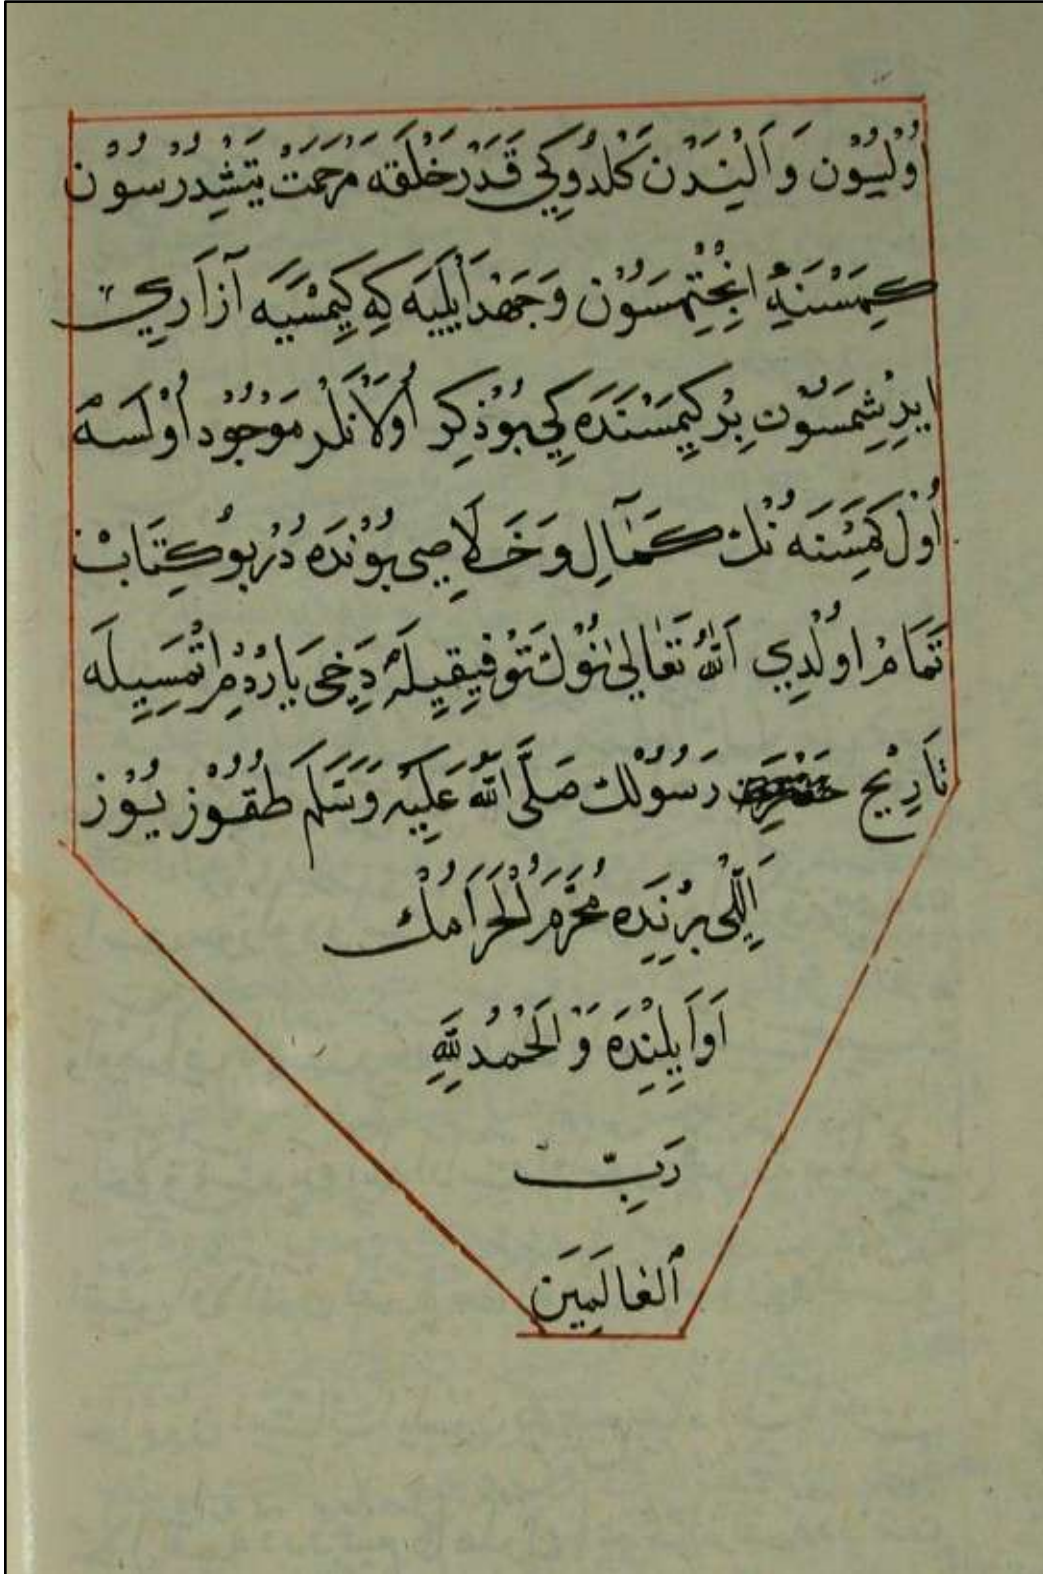 اُولْسُوْن وَ اَلِنْدَنْ كَلْدُوكِي قَدَرْ خَلْقَه مَرْحَمَتْ يَتِشْدُرْسُوْن
كِمَسْنَهِ اِنْجِتْمَسُوْن وَ جَهْد اَيْلَيَه كِه كِيمْسَيَه آزَارِي
ايرِشْمَسُوْن بِرْ كِيمَسْنَدَه كِي بُوْ ذِكِرْ اُولَانْلَرْ مَوْجُوْد اُوْلَسَه
اُوْل كَمِسْنَه نُنْك كَمَالِ وَ خَلَاصِي بُوْنْدَه دُرْ بُو كِتَابْ
تَمَامْ اُولْدِي اَللّٰهُ تَعَالٰى نُوْك تَوْفِيقِيلَه دَخِي يَارْدُمِ اِتْمَسِيلَه
تَارِيْخ حَضْرَت رَسُوْلُك صَلَّى اللّٰهُ عَلَيْهِ وَسَلَّمَ طُقُوْز يُوْز
اَللِّي بِرِنْدَه مُحَرَّمُ الْحَرَامُك
اَوَايِلِنْدَه وَ الْحَمْدُ لِلّٰهِ
رَبِّ
الْعَالَمِينَ